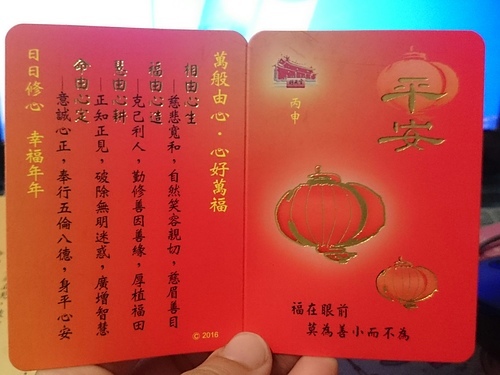 平安
丙申
福在眼前
莫為善小而不為
萬般由心·心好萬福
相由心生
──慈悲寬和,自然笑容親切,慈眉善目
福由心造
──克己利人,勤修善因善緣,厚植福田
慧由心耕
──正知正見,破除無明迷惑,廣增智慧
命由心定
──意誠心正,奉行五倫八德,身平心安
日日修心 幸福年年
© 2016